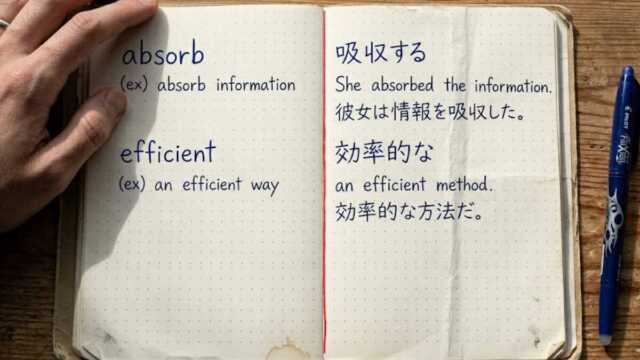 absorb
(ex) absorb information
efficient
(ex) an efficient way
吸収する
She absorbed the information.
彼女は情報を吸収した。
効率的な
an efficient method.
効率的な方法だ。
PILOT